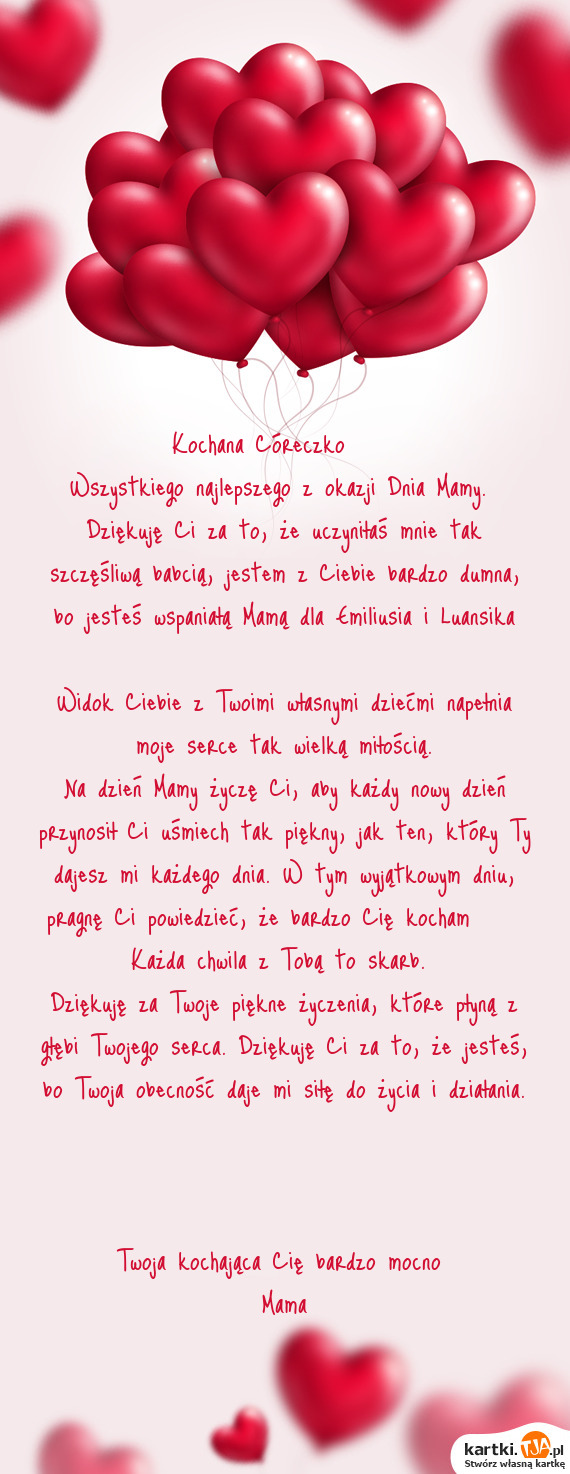 Kochana Córeczko
Wszystkiego najlepszego z okazji Dnia Mamy.
Dziękuję Ci za to, że uczyniłaś mnie tak
szczęśliwą babcią, jestem z Ciebie bardzo dumna,
bo jesteś wspaniałą Mamą dla Emiliusia i Luansika
Widok Ciebie z Twoimi własnymi dziećmi napełnia
moje serce tak wielką miłością.
Na dzień Mamy życzę Ci, aby każdy nowy dzień
przynosił Ci uśmiech tak piękny, jak ten, który Ty
dajesz mi każdego dnia. W tym wyjątkowym dniu,
pragnę Ci powiedzieć, że bardzo Cię kocham
Każda chwila z Tobą to skarb.
Dziękuję za Twoje piękne życzenia, które płyną z
głębi Twojego serca. Dziękuję Ci za to, że jesteś,
bo Twoja obecność daje mi siłę do życia i działania.
Twoja kochająca Cię bardzo mocno
Mama
kartki.TJA.pl
Stwórz własną kartkę